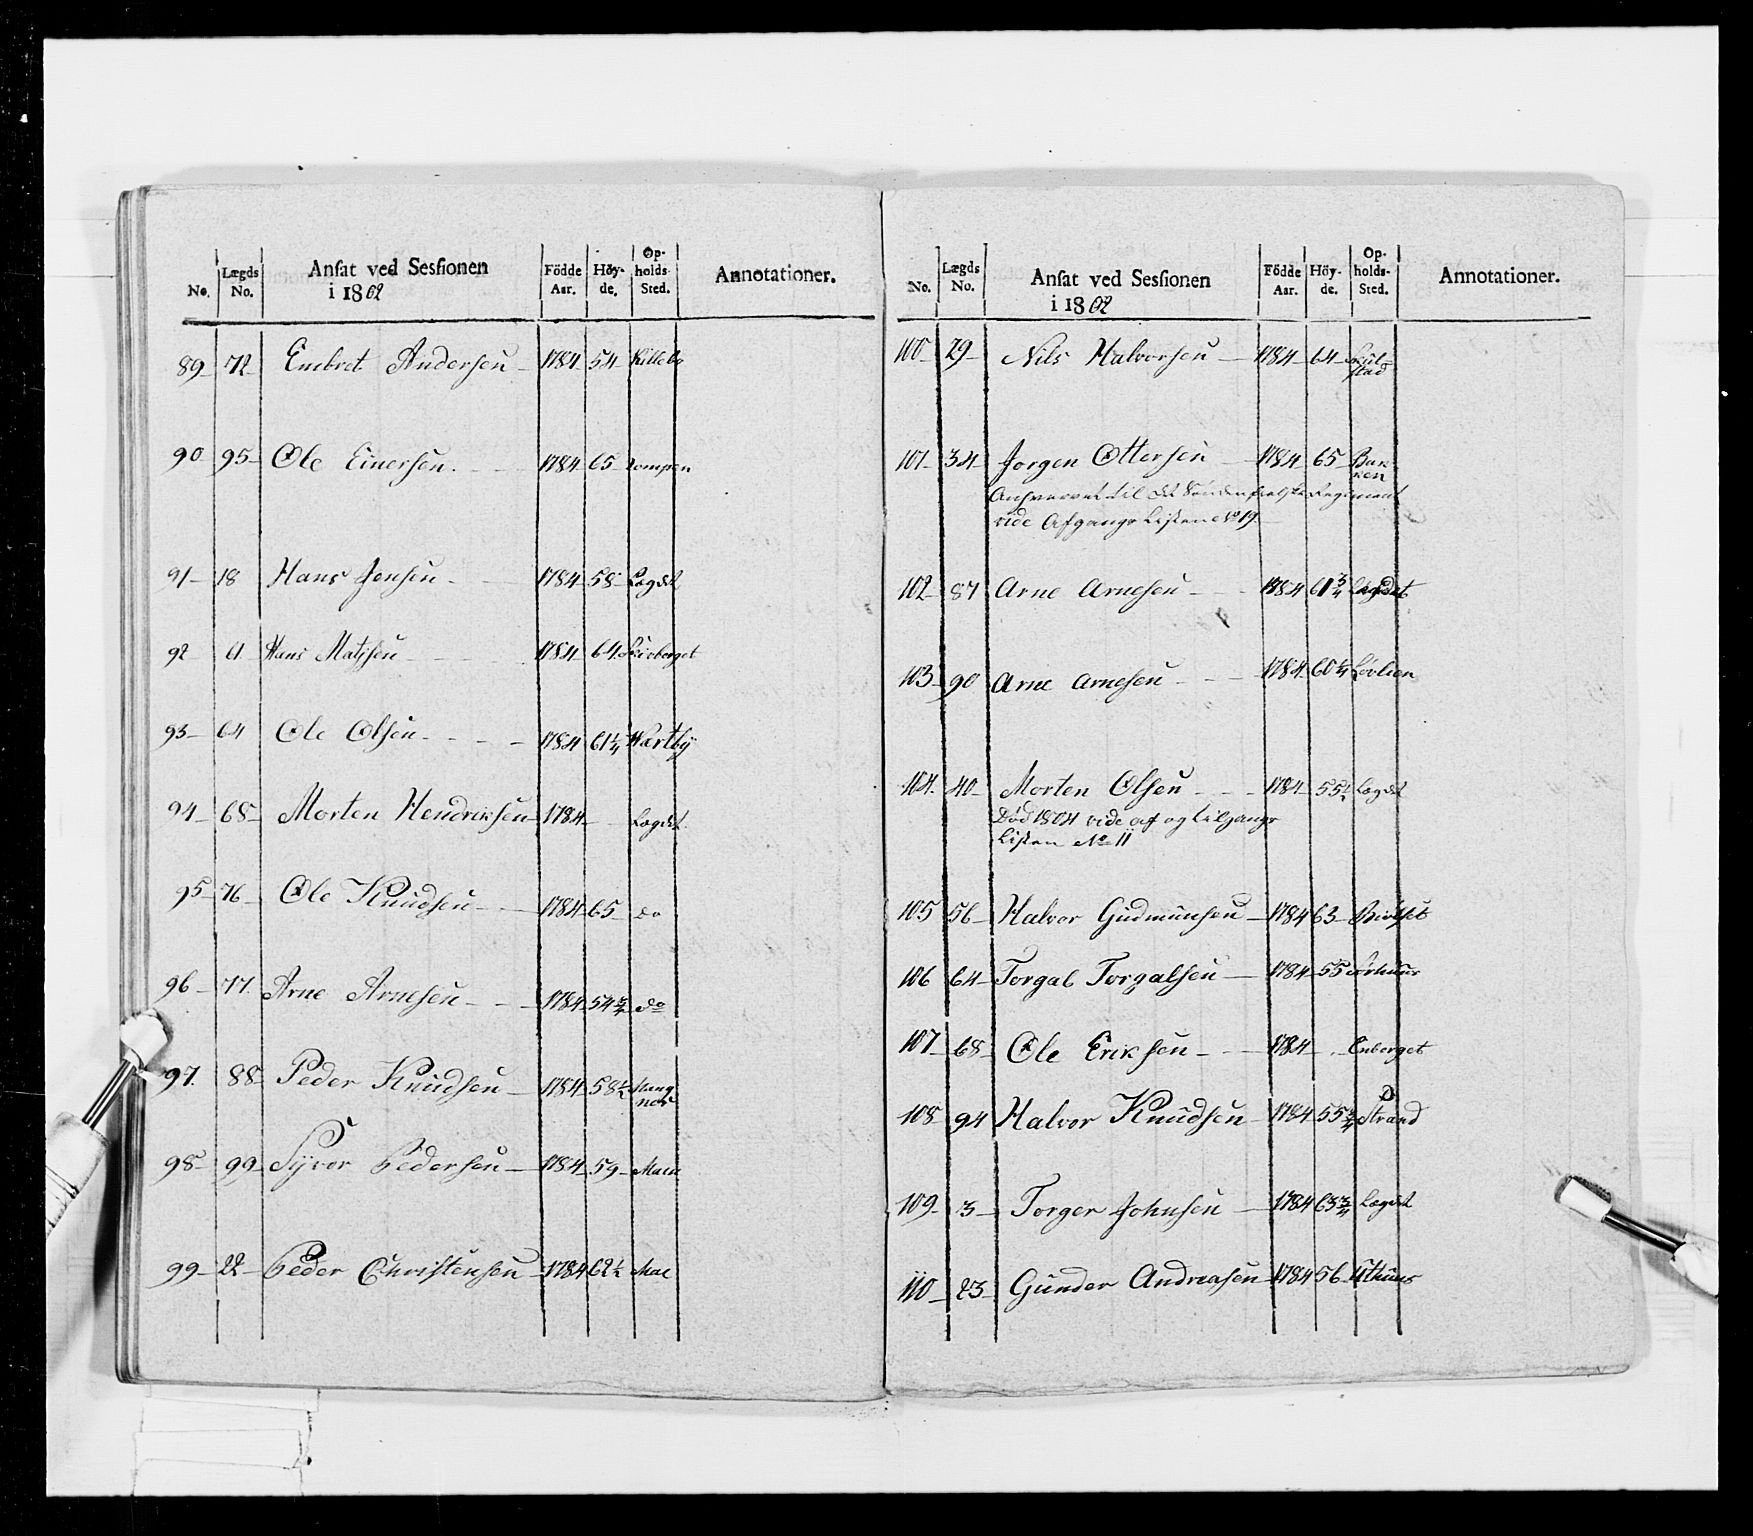 No. Lægds No. Ansat ved Sessionen i 1802 Födde Aar. Höy-de. Op-holds-Sted. Annotationer.
89 72 Embret Andersen 1784 54 Killebo
90 95 Ole Einersen 1784 65 Rompen
91 18 Hans Jensen 1784 58 Lægdet
92 Hans Matsen 1784 64 Skirberget
93 64 Ole Olsen 1784 61¼ Wærtby
94 68 Morten Hendriksen 1784 Lægdet
95 76 Ole Knudsen 1784 65 do
96 77 Arne Arnesen 1784 54¾ do
97 88 Peder Knudsen 1784 58½ Mangnor
98 99 Syver Pedersen 1784 59 Moen
99 22 Peder Christensen 1784 62½ Moe
No. Lægds No. Ansat ved Sessionen i 1802 Födde Aar. Höy-de. Op-holds-Sted. Annotationer.
100 29 Nils Halvorsen 1784 64
101 34 Jorgen Ottersen 1784 65 Bakken
Anhvervet til det Søndenfielske Regiment
vide Afgangs Listen No 19
102 87 Arne Arnesen 1784 61¾ Lægdet
103 90 Arne Arnesen 1784 60¼ Lövlien
104 40 Morten Olsen 1784 55½ Lægdet
Död 1804 vide af og tilgangs
Listen No 11
105 56 Halvor Gudmunsen 1784 63
106 64 Torgal Torgalsen 1784 55
107 68 Ole Eriksen 1784 Enberget
108 94 Halvor Knudsen 1784 55¾ Strand
109 3 Torger Johnsen 1784 63¾ Lægdet
110 23 Gunder Andreasen 1784 56 Uthuus